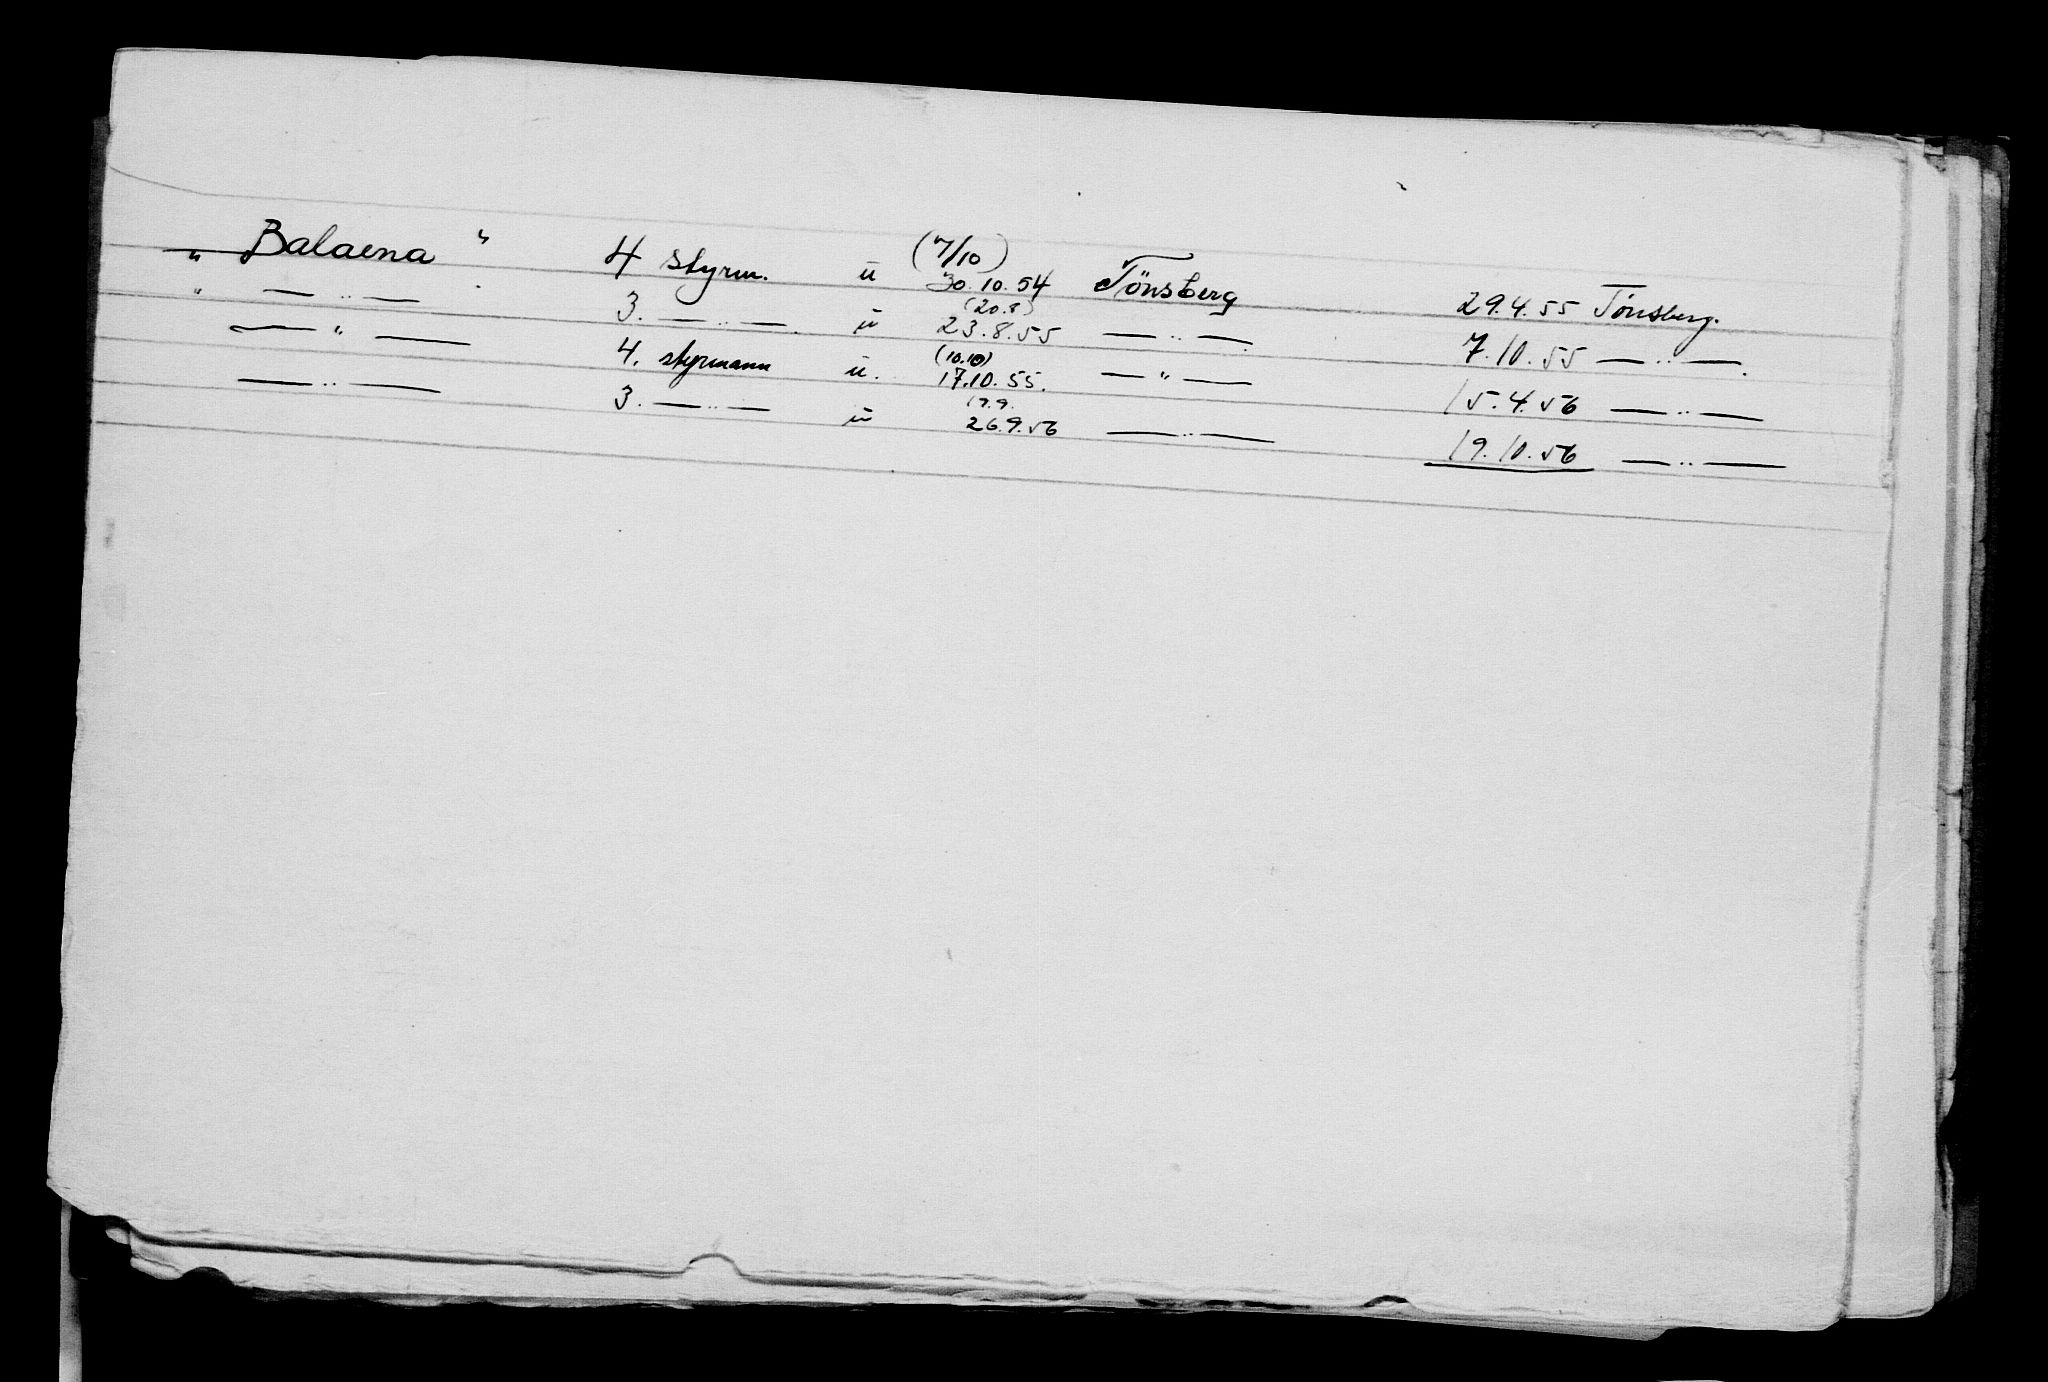 „ Balaena " 4 styrm. u (7/10) 30.10.54 Tönsberg 29.4.55 Tönsberg.
" — „ — 3. — „ — . u (20.8) 23.8.55 — „ — . 7.10.55 — „ — .
— " — 4. styrmann u. (10.10) 17.10.55. — " — 15.4.56 — „ —
— „ — 3. — „ — u 19.9. 26.9.56 — „ — 19.10.56 — „ —